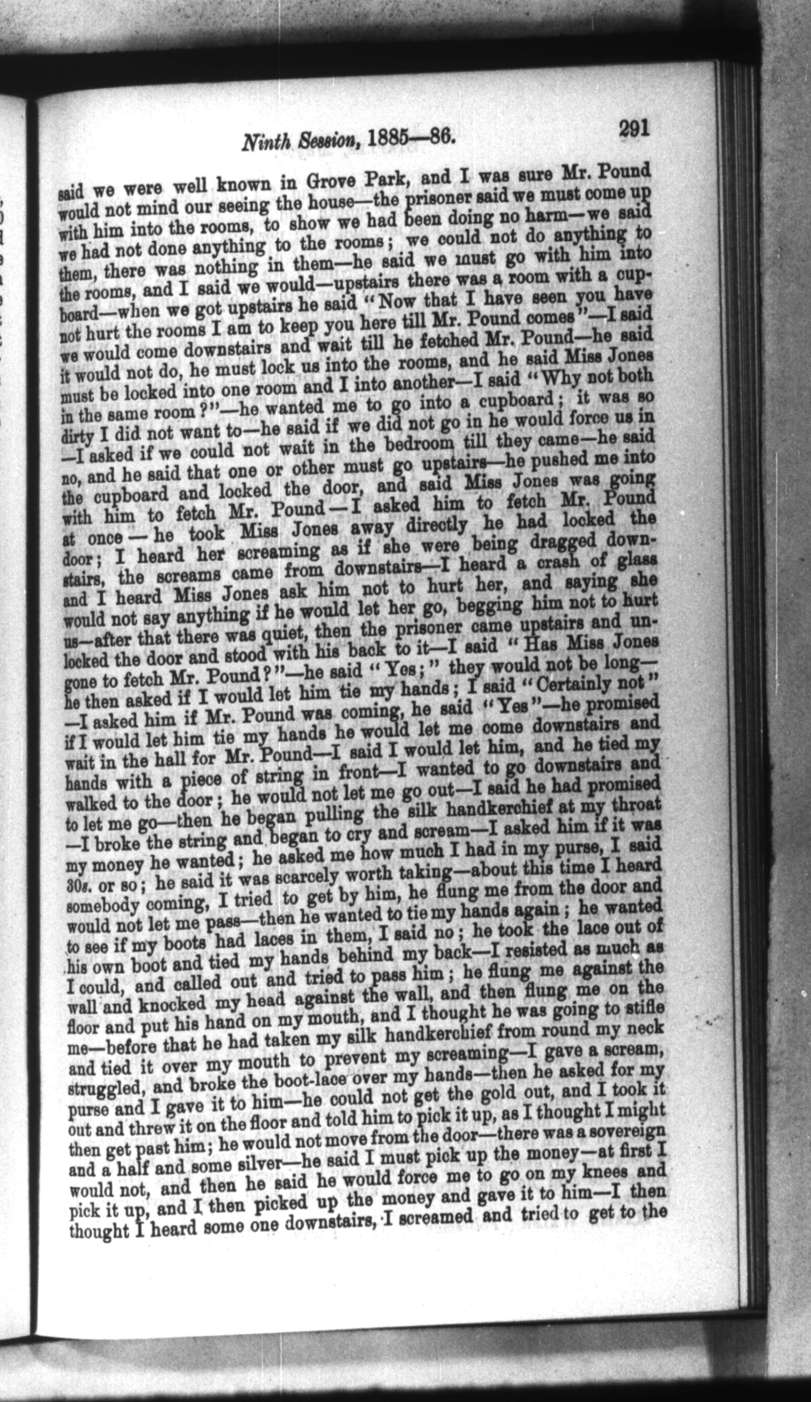 Ninth Session, 1885—86. 291
said we were well known in Grove Park, and I was sure Mr. Pound
would not mind our seeing the house—the prisoner said we must come up
with him into the rooms, to show we had been doing no harm—we said
we had not done anything to the rooms; we could not do anything to
them, there was nothing in them—he said we must go with him into
the rooms, and I said we would—upstairs there was a room with a cup-
board—when we got upstairs he said "Now that I have seen you have
not hurt the rooms I am to keep you here till Mr. Pound comes"—I said
we would come downstairs and wait till he fetched Mr. Pound—he said
it would not do, he must lock us into the rooms, and he said Miss Jones
must be locked into one room and I into another—I said "Why not both
in the same room?"—he wanted me to go into a cupboard; it was so
dirty I did not want to—he said if we did not go in he would force us in
—I asked if we could not wait in the bedroom till they came—he said
no, and he said that one or other must go upstairs—he pushed me into
the cupboard and locked the door, and said Miss Jones was going
with him to fetch Mr. Pound—I asked him to fetch Mr. Pound
at once—he took Miss Jones away directly he had locked the
door; I heard her screaming as if she were being dragged down-
stairs, the screams came from downstairs—I heard a crash of glass
and I heard Miss Jones ask him not to hurt her, and saying she
would not say anything if he would let her go, begging him not to hurt
us—after that there was quiet, then the prisoner came upstairs and un-
locked the door and stood with his back to it—I said "Has Miss Jones
gone to fetch Mr. Pound?"—he said "Yes;" they would not be long—
he then asked if I would let him tie my hands; I said "Certainly not"
—I asked him if Mr. Pound was coming, he said "Yes"—he promised
if I would let him tie my hands he would let me come downstairs and
wait in the hall for Mr. Pound—I said I would let him, and he tied my
hands with a piece of string in front—I wanted to go downstairs and
walked to the door; he would not let me go out—I said he had promised
to let me go—then he began pulling the silk handkerchief at my throat
—I broke the string and began to cry and scream—I asked him if it was
my money he wanted; he asked me how much I had in my purse, I said
30s. or so; he said it was scarcely worth taking—about this time I heard
somebody coming, I tried to get by him, he flung me from the door and
would not let me pass—then he wanted to tie my hands again; he wanted
to see if my boots had laces in them, I said no; he took the lace out of
his own boot and tied my hands behind my back—I resisted as much as
I could, and called out and tried to pass him; he flung me against the
wall and knocked my head against the wall, and then flung me on the
floor and put his hand on my mouth, and I thought he was going to stifle
me—before that he had taken my silk handkerchief from round my neck
and tied it over my mouth to prevent my screaming—I gave a scream,
struggled, and broke the boot-lace over my hands—then he asked for my
purse and I gave it to him—he could not get the gold out, and I took it
out and threw it on the floor and told him to pick it up, as I thought I might
then get past him; he would not move from the door—there was a sovereign
and a half and some silver—he said I must pick up the money—at first I
would not, and then he said he would force me to go on my knees and
pick it up, and I then picked up the money and gave it to him—I then
thought I heard some one downstairs, I screamed and tried to get to the